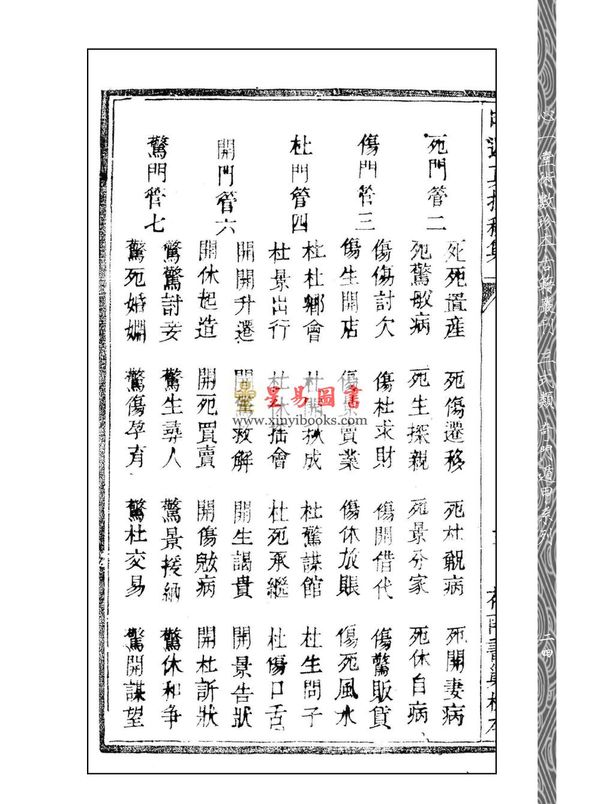 死門管二
死死置産 死傷遷移 死杜親病 死開妻病
死驚敵病 死生探親 死景分家 死休自病
傷門管三
傷傷討欠 傷杜求財 傷開借代 傷驚販貨
傷生開店 傷景賣業 傷休放賬 傷死風水
杜門管四
杜杜鄉會 杜開秋成 杜驚謀館 杜生問子
杜景出行 杜休 會 杜死承繼 杜傷口舌
開門管六
開開升遷 開驚救解 開生謁貴 開景告狀
開休起造 開死買賣 開傷 病 開杜訴狀
驚門管七
驚驚討妾 驚生尋人 驚景接納 驚休和爭
驚死婚姻 驚傷孕育 驚杜交易 驚開謀望
星易圖書
www.xinyibooks.com
心一堂術數珍本古籍叢刊 三式類 奇門遁甲系列
二四